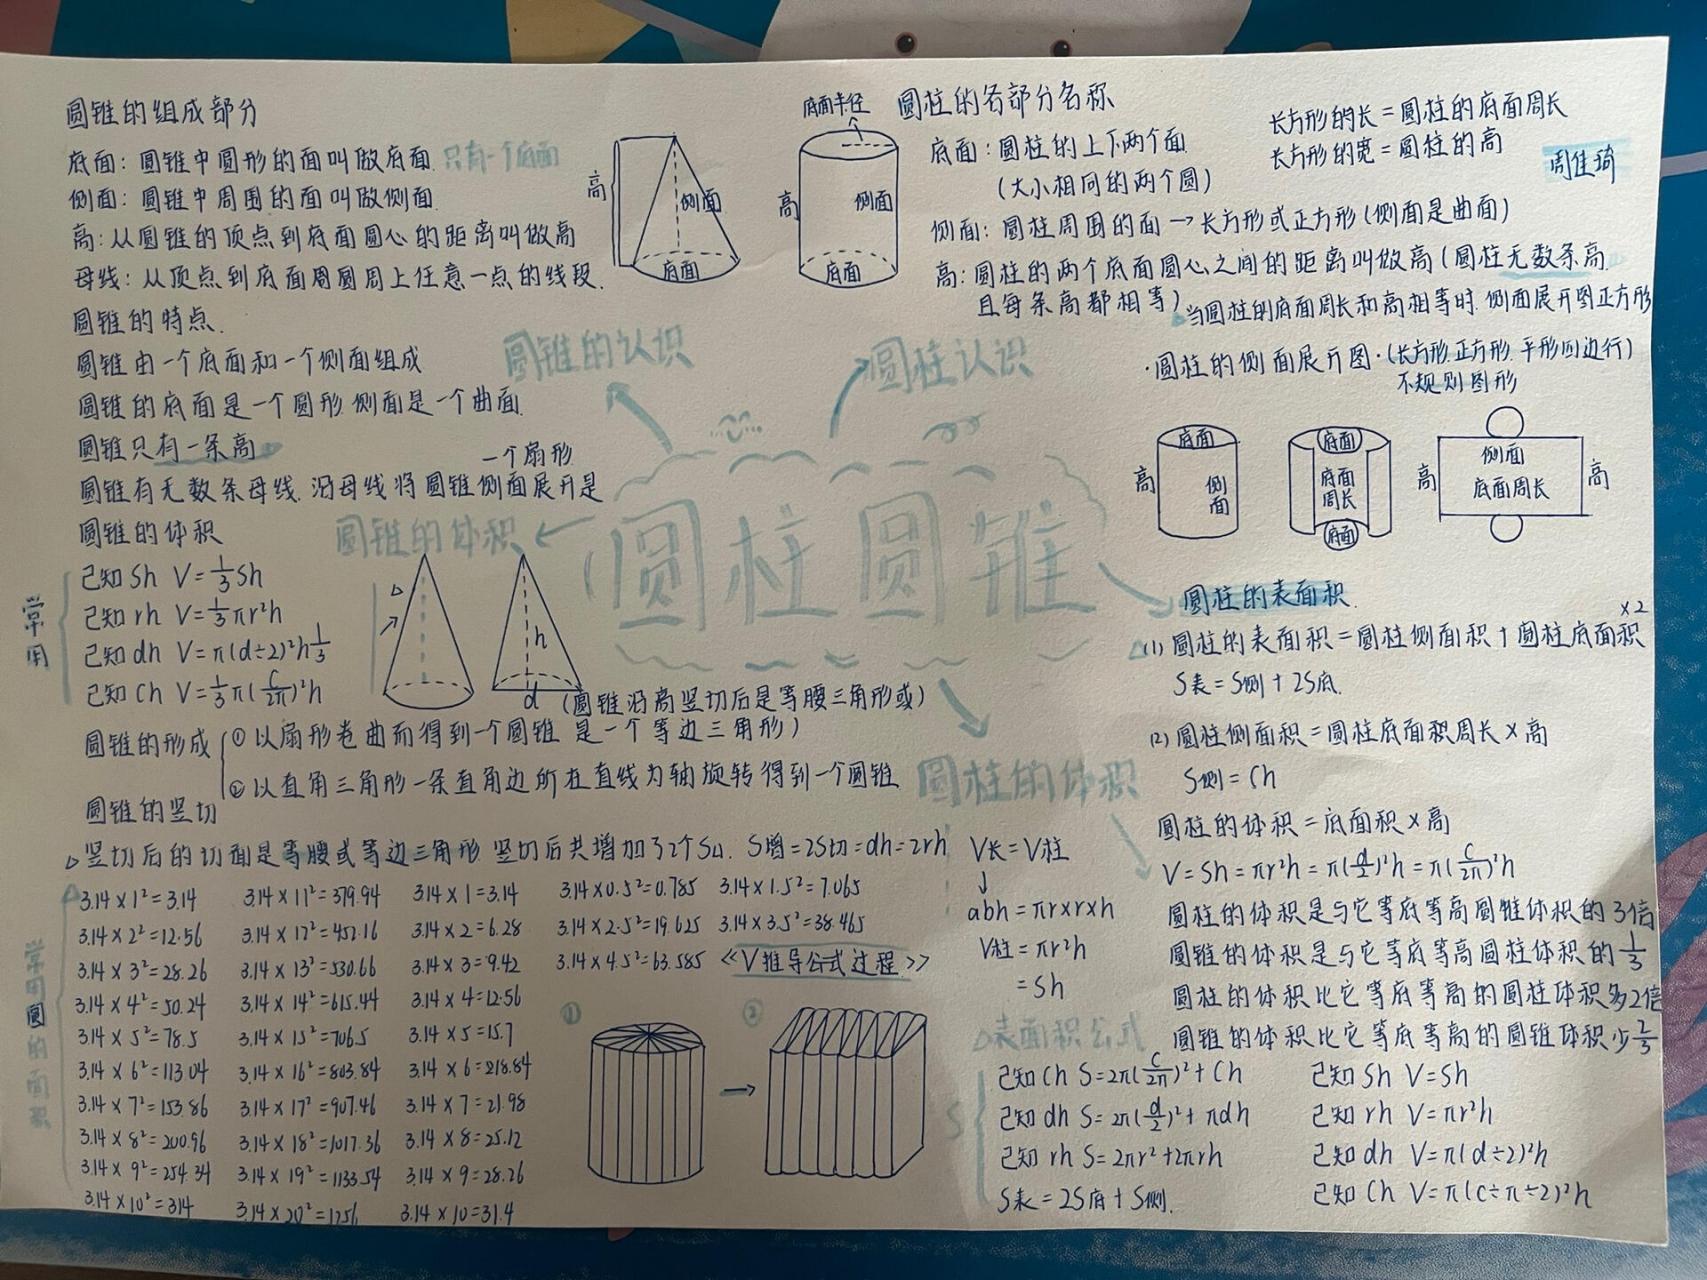 圆锥的组成部分
底面：圆锥中圆形的面叫做底面 只有一个底面
侧面：圆锥中周围的面叫做侧面
高：从圆锥的顶点到底面圆心的距离叫做高
母线：从顶点到底面圆周上任意一点的线段.
圆锥的特点.
圆锥由一个底面和一个侧面组成
圆锥的底面是一个圆形 侧面是一个曲面
圆锥只有一条高
一个扇形
圆锥有无数条母线.沿母线将圆锥侧面展开是
圆锥的体积
常用
已知Sh V=1/3Sh
已知rh V=1/3πr²h
已知dh V=π(d÷2)²h1/3
已知Ch V=1/3π(C/2π)²h
高
侧面
底面
圆锥的认识
圆锥的体积
h
d
(圆锥沿高竖切后是等腰三角形或)
圆锥的形成
①以扇形卷曲而得到一个圆锥 是一个等边三角形)
②以直角三角形一条直角边所在直线为轴旋转得到一个圆锥
圆锥的竖切
竖切后的切面是等腰或等边三角形 竖切后共增加了2个S△. S增=2S切=dh=2rh
圆柱圆锥
底面半径
高
侧面
底面
圆柱的各部分名称
底面：圆柱的上下两个面
(大小相同的两个圆)
长方形的长=圆柱的底面周长
长方形的宽=圆柱的高
周佳琦
侧面：圆柱周围的面→长方形或正方形(侧面是曲面)
高：圆柱的两个底面圆心之间的距离叫做高(圆柱无数条高
且每条高都相等)
当圆柱的底面周长和高相等时.侧面展开图正方形
圆柱认识
·圆柱的侧面展开图·(长方形.正方形.平形四边行)
不规则图形
底面
高
侧面
底面
底面周长
底面
高
侧面
底面周长
高
圆柱的表面积
×2
(1)圆柱的表面积=圆柱侧面积+圆柱底面积
S表=S侧+2S底.
(2)圆柱侧面积=圆柱底面积周长×高
S侧=Ch
圆柱的体积
圆柱的体积=底面积×高
V=Sh=πr²h=π(d/2)²h=π(C/2π)²h
圆柱的体积是与它等底等高圆锥体积的3倍
圆锥的体积是与它等底等高圆柱体积的1/3
圆柱的体积比它等底等高的圆柱体积多2倍
圆锥的体积比它等底等高的圆锥体积少2/3
V长=V柱
↓
abh=πr×r×h
V柱=πr²h
=Sh
常用圆的面积
3.14×1²=3.14
3.14×2²=12.56
3.14×3²=28.26
3.14×4²=50.24
3.14×5²=78.5
3.14×6²=113.04
3.14×7²=153.86
3.14×8²=200.96
3.14×9²=254.34
3.14×10²=314
3.14×11²=379.94
3.14×12²=452.16
3.14×13²=530.66
3.14×14²=615.44
3.14×15²=706.5
3.14×16²=803.84
3.14×17²=907.46
3.14×18²=1017.36
3.14×19²=1133.54
3.14×20²=1256
3.14×1=3.14
3.14×2=6.28
3.14×3=9.42
3.14×4=12.56
3.14×5=15.7
3.14×6=218.84
3.14×7=21.98
3.14×8=25.12
3.14×9=28.26
3.14×10=31.4
3.14×0.5²=0.785
3.14×2.5²=19.625
3.14×4.5²=63.585
3.14×1.5²=7.065
3.14×3.5²=38.465
《V推导公式过程》
①
②
表面积公式
S
已知Ch S=2π(C/2π)²+Ch
已知dh S=2π(d/2)²+πdh
已知rh S=2πr²+2πrh
S表=2S底+S侧.
已知Sh V=Sh
已知rh V=πr²h
已知dh V=π(d÷2)²h
已知Ch V=π(C÷π÷2)²h